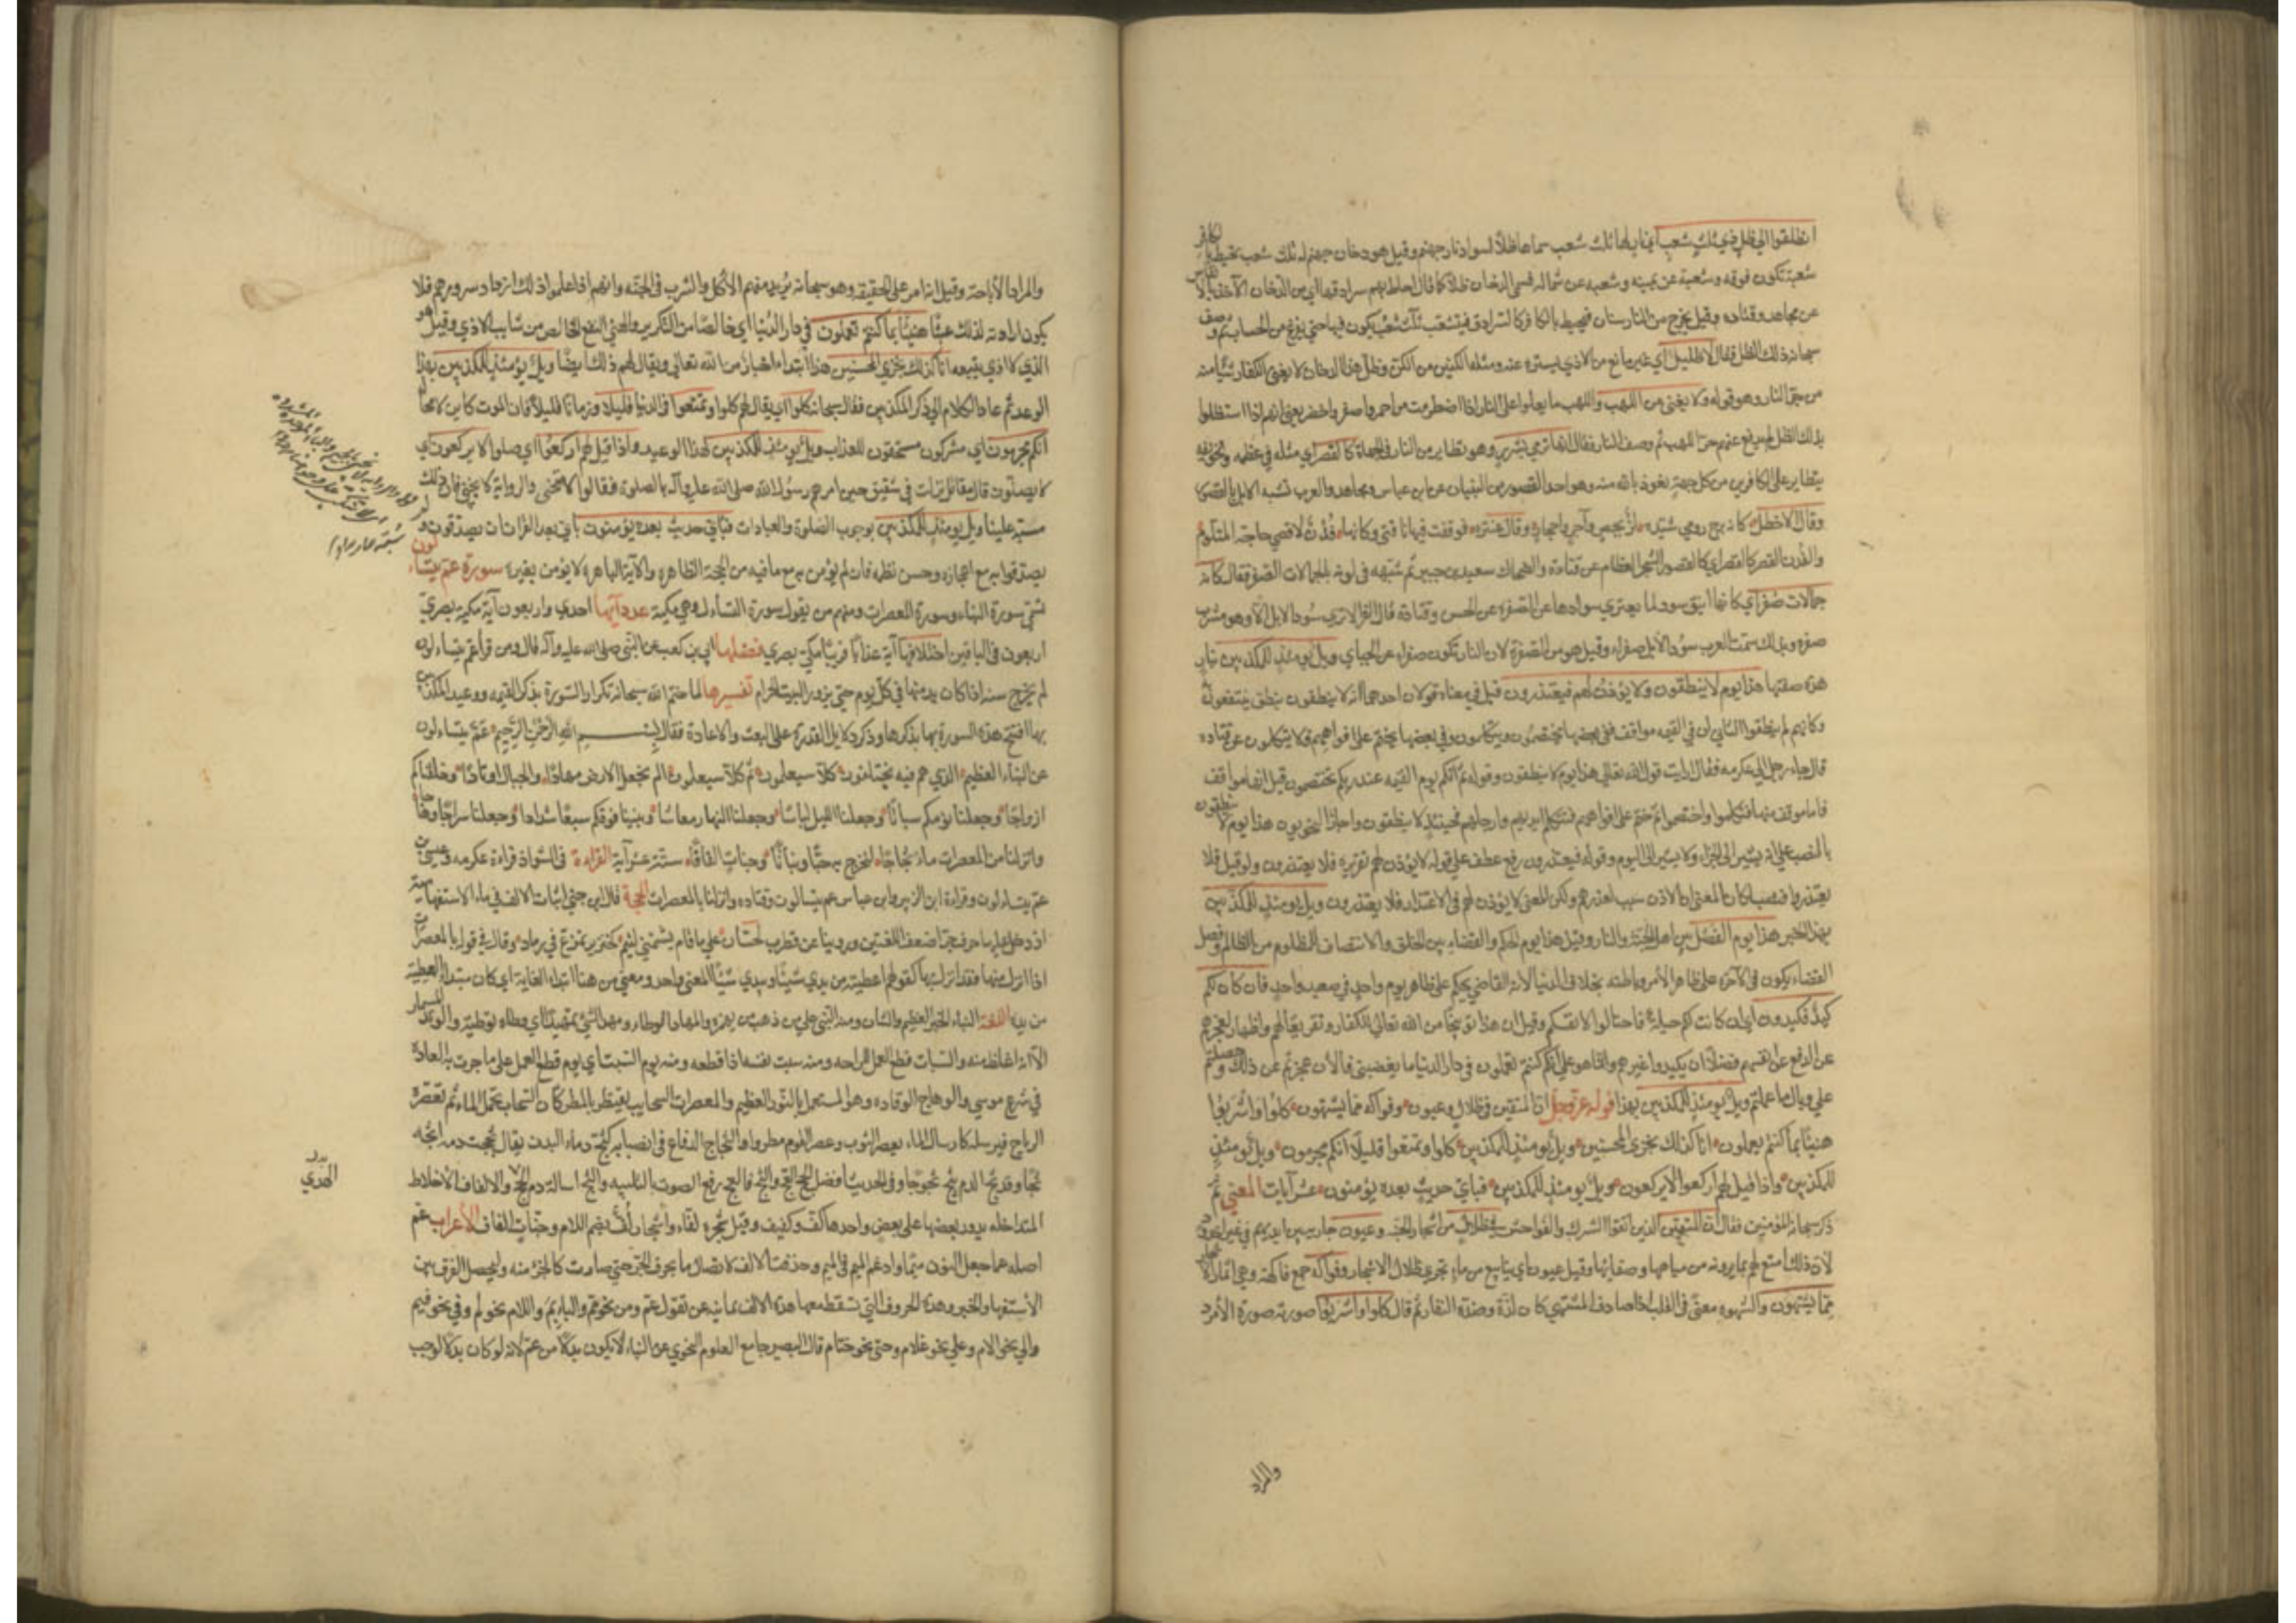 انطلقوا الي ظل ذي ثلث شعب اي نار لها ثلث شعب سماها ظلا لسواد نار جهنم وقيل هو دخان جهنم له ثلث شعب تحيط بالكافر
شعبة تكون فوقه وشعبة عن يمينه وشعبه عن شماله فسمي الدخان ظلا كما قال احاط بهم سرادقها اي من الدخان الآخذ بالانفاس
عن مجاهد وقتاده وقيل يخرج من النار لسان فيحيط بالكافر كالسرادق فيتشعب ثلث شعب يكون فيها حتي يفرغ من الحساب ثم وصف
سبحانه ذلك الظل فقال لا ظليل اي غير مانع من الاذي يستره عنه ومثله الكنين من الكن وظل هذا الدخان لا يغني الكفار شيئا منه
من حر النار وهو قوله ولا يغني من اللهب واللهب ما يعلوا علي النار اذا اضطرمت من احمر واصفر واخضر يعني انهم اذا استظلوا
بذلك الظل لم يدفع عنهم حر اللهب ثم وصف النار فقال انها ترمي بشرر وهو تطاير من النار في الجهات كالقصر اي مثله في عظمه وتخويفه
يتطاير علي الكافرين من كل جهة نعوذ بالله منه وهو واحد القصور من البنيان عن ابن عباس ومجاهد والعرب تشبه الابل بالقصور
وقال الاخطل كانه برج رومي شيده لز بجص وآجر واحجار وقال عنتره فوقفت فيها ناقتي وكانها فدن لاقضي حاجة المتلوم
والفدن القصر كالقصر اي كالقصور الشجر العظام عن قتادة والضحاك وسعيد بن جبير ثم شبهه في لونه بالجمالات الصفر فقال كانه
جمالات صفر اي كانها اينق سود لما يعتري سوادها عن الصفره عن الحسن وقتادة قال الفرا لا تري سود الابل الا وهو مشرب
صفره ولذلك سمت العرب سود الابل صفراء وقيل هو من الصفرة لان النار تكون صفراء عن الجبائي ويل يومئذ للمكذبين بنار
هذه صفتها هذا يوم لا ينطقون ولا يؤذن لهم فيعتذرون قيل في معناه قولان احدهما انه لا ينطقون بنطق ينتفعون به
وكانهم لم ينطقوا الثاني ان في القيمه مواقف ففي بعضها يختصمون ويتكلمون وفي بعضها يختم علي افواههم فلا يتكلمون عن قتاده
قال جاء رجل الي عكرمه فقال ارايت قول الله تعالي هذا يوم لا ينطقون وقوله ثم انكم يوم القيمه عند ربكم تختصمون قيل انها مواقف
فاما موقف منها فتكلموا واختصموا ثم ختم علي افواههم فتتكلم ايديهم وارجلهم فحينئذ لا ينطقون واجاز النحويون هذا يوم لا ينطقون
بالنصب علي انه يشير الي الجزاء ولا يشير الي اليوم وقوله فيعتذرون رفع عطف علي قوله لا يؤذن لهم تقريره فلا يعتذرون ولو قيل فلا
يعتذروا فنصب لكان المعني ان الاذن سبب لعذرهم ولكن المعني لا يؤذن لهم في الاعتذار فلا يعتذرون ويل يومئذ للمكذبين
بهذا الخبر هذا يوم الفصل بين اهل الجنة والنار وقيل هذا يوم الحكم والقضاء بين الخلق والانتصاف للمظلوم من الظالم وفصل
القضاء يكون في الآخرة علي ظاهر الامر وباطنه بخلاف الدنيا لان القاضي يحكم علي ظاهر يوم واحد في صعيد واحد فان كان لكم
كيد فكيدون اي ان كانت لكم حيلة فاحتالوا لانفسكم وقيل ان هذا توبيخا من الله تعالي للكفار وتقريعا لهم واظهارا لعجزهم
عن الدفع عن انفسهم فضلا ان يكيدوا غيرهم وانما هو علي انكم كنتم تعملون في دار الدنيا ما يغضبني فالان عجزتم عن ذلك وحصلتم
علي وبال ما عملتم ويل يومئذ للمكذبين بهذا قوله عز وجل ان المتقين في ظلال وعيون وفواكه مما يشتهون كلوا واشربوا
هنيئا بما كنتم تعملون انا كذلك نجزي المحسنين ويل يومئذ للمكذبين كلوا وتمتعوا قليلا انكم مجرمون ويل يومئذ
للمكذبين واذا قيل لهم اركعوا لا يركعون ويل يومئذ للمكذبين فباي حديث بعده يؤمنون عشر آيات المعني ثم
ذكر سبحانه المؤمنين فقال ان المتقين الذين اتقوا الشرك والفواحش في ظلال من اشجار الجنه وعيون جارية بين ايديهم في غير اخدود
لان ذلك امتع لهم بما يرونه من مياهها وصفائها وقيل عيون اي ينابيع من ماء يجري خلال الاشجار وفواكه جمع فاكهة وهي ثمار الاشجار
مما يشتهون والشهوه معني في القلب اذا صادف المشتهي كان لذة وضده النفار ثم قال كلوا واشربوا صورته صورة الأمر
والمراد
والمراد الاباحة وقيل انه امر علي الحقيقه وهو سبحانه يريد منهم الاكل والشرب في الجنه وانهم اذا علموا ذلك ازداد سرورهم فلا
يكون ارادته لذلك عبثا هنيئا بما كنتم تعملون في دار الدنيا اي خالصا من التكدير والهني النفع الخالص من شايب الاذي وقيل هو
الذي لا اذي يتبعه انا كذلك نجزي المحسنين هذا ابتداء اخبار من الله تعالي ويقال لهم ذلك ايضا ويل يومئذ للمكذبين بهذا
الوعد ثم عاد الكلام الي ذكر المكذبين فقال سبحانه كلوا اي يقال لهم كلوا وتمتعوا في الدنيا قليلا وزمانا قليلا فان الموت كاين لا محالة
انكم مجرمون اي مشركون مستحقون للعذاب ويل يومئذ للمكذبين بهذا الوعيد واذا قيل لهم اركعوا اي صلوا لا يركعون اي
لا يصلون قال مقاتل نزلت في ثقيف حين امرهم رسول الله صلي الله عليه وآله بالصلوة فقالوا لا ننحني والرواية لا نجبي فان ذلك
مسبة علينا ويل يومئذ للمكذبين بوجوب الصلوة والعبادات فباي حديث بعده يؤمنون باي بعد القران يصدقون و
يصدقوا به مع اعجازه وحسن نظمه فان لم يؤمن به مع ما فيه من الحجة الظاهره والآية الباهره لا يؤمن بغيره سورة عم يتساءلون
تسمي سورة النباء وسورة المعصرات ومنهم من يقول سورة التساءل وهي مكية عدد آيها احدي واربعون آية مكي بصري
اربعون في الباقين اختلافها آية عذابا قريبا مكي بصري فضلها ابي بن كعب عن النبي صلي الله عليه وآله قال ومن قرا عم يتساءلون
لم يخرج سنه اذا كان يدمنها في كل يوم حتي يزور البيت الحرام تفسيرها لما ختم الله سبحانه تكرار السورة بذكر القيمه ووعيد المكذبين
بها افتتح هذه السورة بها بذكرها وذكر دلايل القدرة علي البعث والاعادة فقال بسم الله الرحمن الرحيم عم يتساءلون
عن النباء العظيم الذي هم فيه يختلفون كلا سيعلمون ثم كلا سيعلمون الم نجعل الارض مهادا والجبال اوتادا وخلقناكم
ازواجا وجعلنا نومكم سباتا وجعلنا الليل لباسا وجعلنا النهار معاشا وبنينا فوقكم سبعا شدادا وجعلنا سراجا وهاجا
وانزلنا من المعصرات ماء ثجاجا لنخرج به حبا ونباتا وجنات الفافا ستة عشر آية القراءة في الشواذ قراءة عكرمه وعيسي
عم يتساءلون وقراءة ابن الزبير وابن عباس عم يتسالون وقتاده وانزلنا بالمعصرات الحجة قال ابن جني اثبات الالف في ماء الاستفهامية
اذ دخل عليها حرف جر اضعف اللغتين وروينا عن قطرب لحسان علي ما قام يشتمني لئيم كخنزير تمرغ في رماد وقال في قوله بالمعصرات
اذا انزل منها فقد انزل بها كقولهم اعطيته من يدي شيئا وبيدي شيئا المعني واحد ومعني من هنا ابتداء الغاية اي كان مبتداء العطية
من يده اللغة النباء الخبر العظيم والشان ومنه النبي علي من ذهب من يهمزه والمهاد الوطاء ومهد الشئ تمهيدا اي وطاه توطئة والوتد المسمار
الا انه اغلظ منه والسبات قطع العمل للراحه ومنه سبت نفسه اذا قطعه ومنه يوم السبت اي يوم قطع العمل علي ما جرت به العادة
في شرع موسي والوهاج الوقاده وهو المستعمل بالنور العظيم والمعصرات السحايب يعتصر بالمطر كان السحاب تحمل الماء ثم تعصره
الرياح فيرسله كارسال الماء بعصر الثوب وعصر القوم مطروا والثجاج الدفاع في انصبابه كثج دماء البدن يقال ثججت دمه اثجه
ثجا وقد ثج الدم يثج ثجوجا وفي الحديث افضل الحج العج والثج فالعج رفع الصوت بالتلبيه والثج اسالة دم الهدي والالفاف الاخلاط
المتداخله يدور بعضها علي بعض واحدها لف ولفيف وقيل شجره لفاء واشجار لف بضم اللام وجنات الفاف الاعراب عم
اصله عما جعل النون ميما وادغم الميم في الميم وحذفت الالف لاتصال ما بحرف الجر حتي صارت كالجزء منه وليحصل الفرق بين
الاستفهام والخبر وهذه الحروف التي تسقط معها هذه الالف ثمانيه عن تقول عم ومن نحو مم والباء بم واللام نحو لم وفي نحو فيم
والي نحو الام وعلي نحو علام وحتي نحو حتام قال البصير جامع العلوم النحوي عن النباء لا يكون بدلا من عم لانه لو كان بدلا لوجب
الهدي